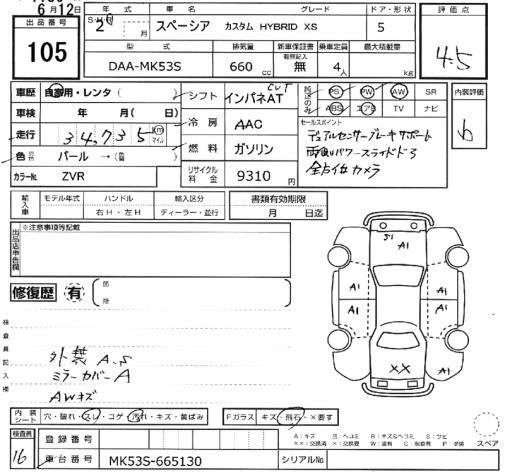 6月12日
出品番号
105
年式 車名 グレード ドア・形状 評価点
月 スペーシア カスタム HYBRID XS 5
4.5
型式 排気量 新車保証書 乗車定員 最大積載量
有無記入
DAA-MK53S 660 cc 無 4人 kg
車歴 自家用・レンタ( ) シフト インパネAT CVT
PS PW AW SR 内装評価
車検 年 月( 日) 冷房 AAC
ABS エアB TV ナビ
b
走行 34,735 km マイル
セールスポイント
デュアルセンサーブレーキサポート
燃料 ガソリン
両側パワースライドドア
色 パール →( )
全方位カメラ
カラーNo. ZVR リサイクル料金 9310円
輸入車 モデル年式 ハンドル 輸入区分 書類有効期限
右H・左H ディーラー・並行 月 日迄
出品店申告欄 ※注意事項等記載
S1 A1
A1 A1
A1 A1
XX
修復歴 有
箇所
検査員記入欄
外装 A.S
ミラーカバーA
AWキズ
内装シート 穴・破れ・スレ・コゲ・汚れ・キズ・黄ばみ Fガラス キズ・飛石・×要す
スペア
検査員 16
登録番号
車台番号 MK53S-665130 シリアルNo.